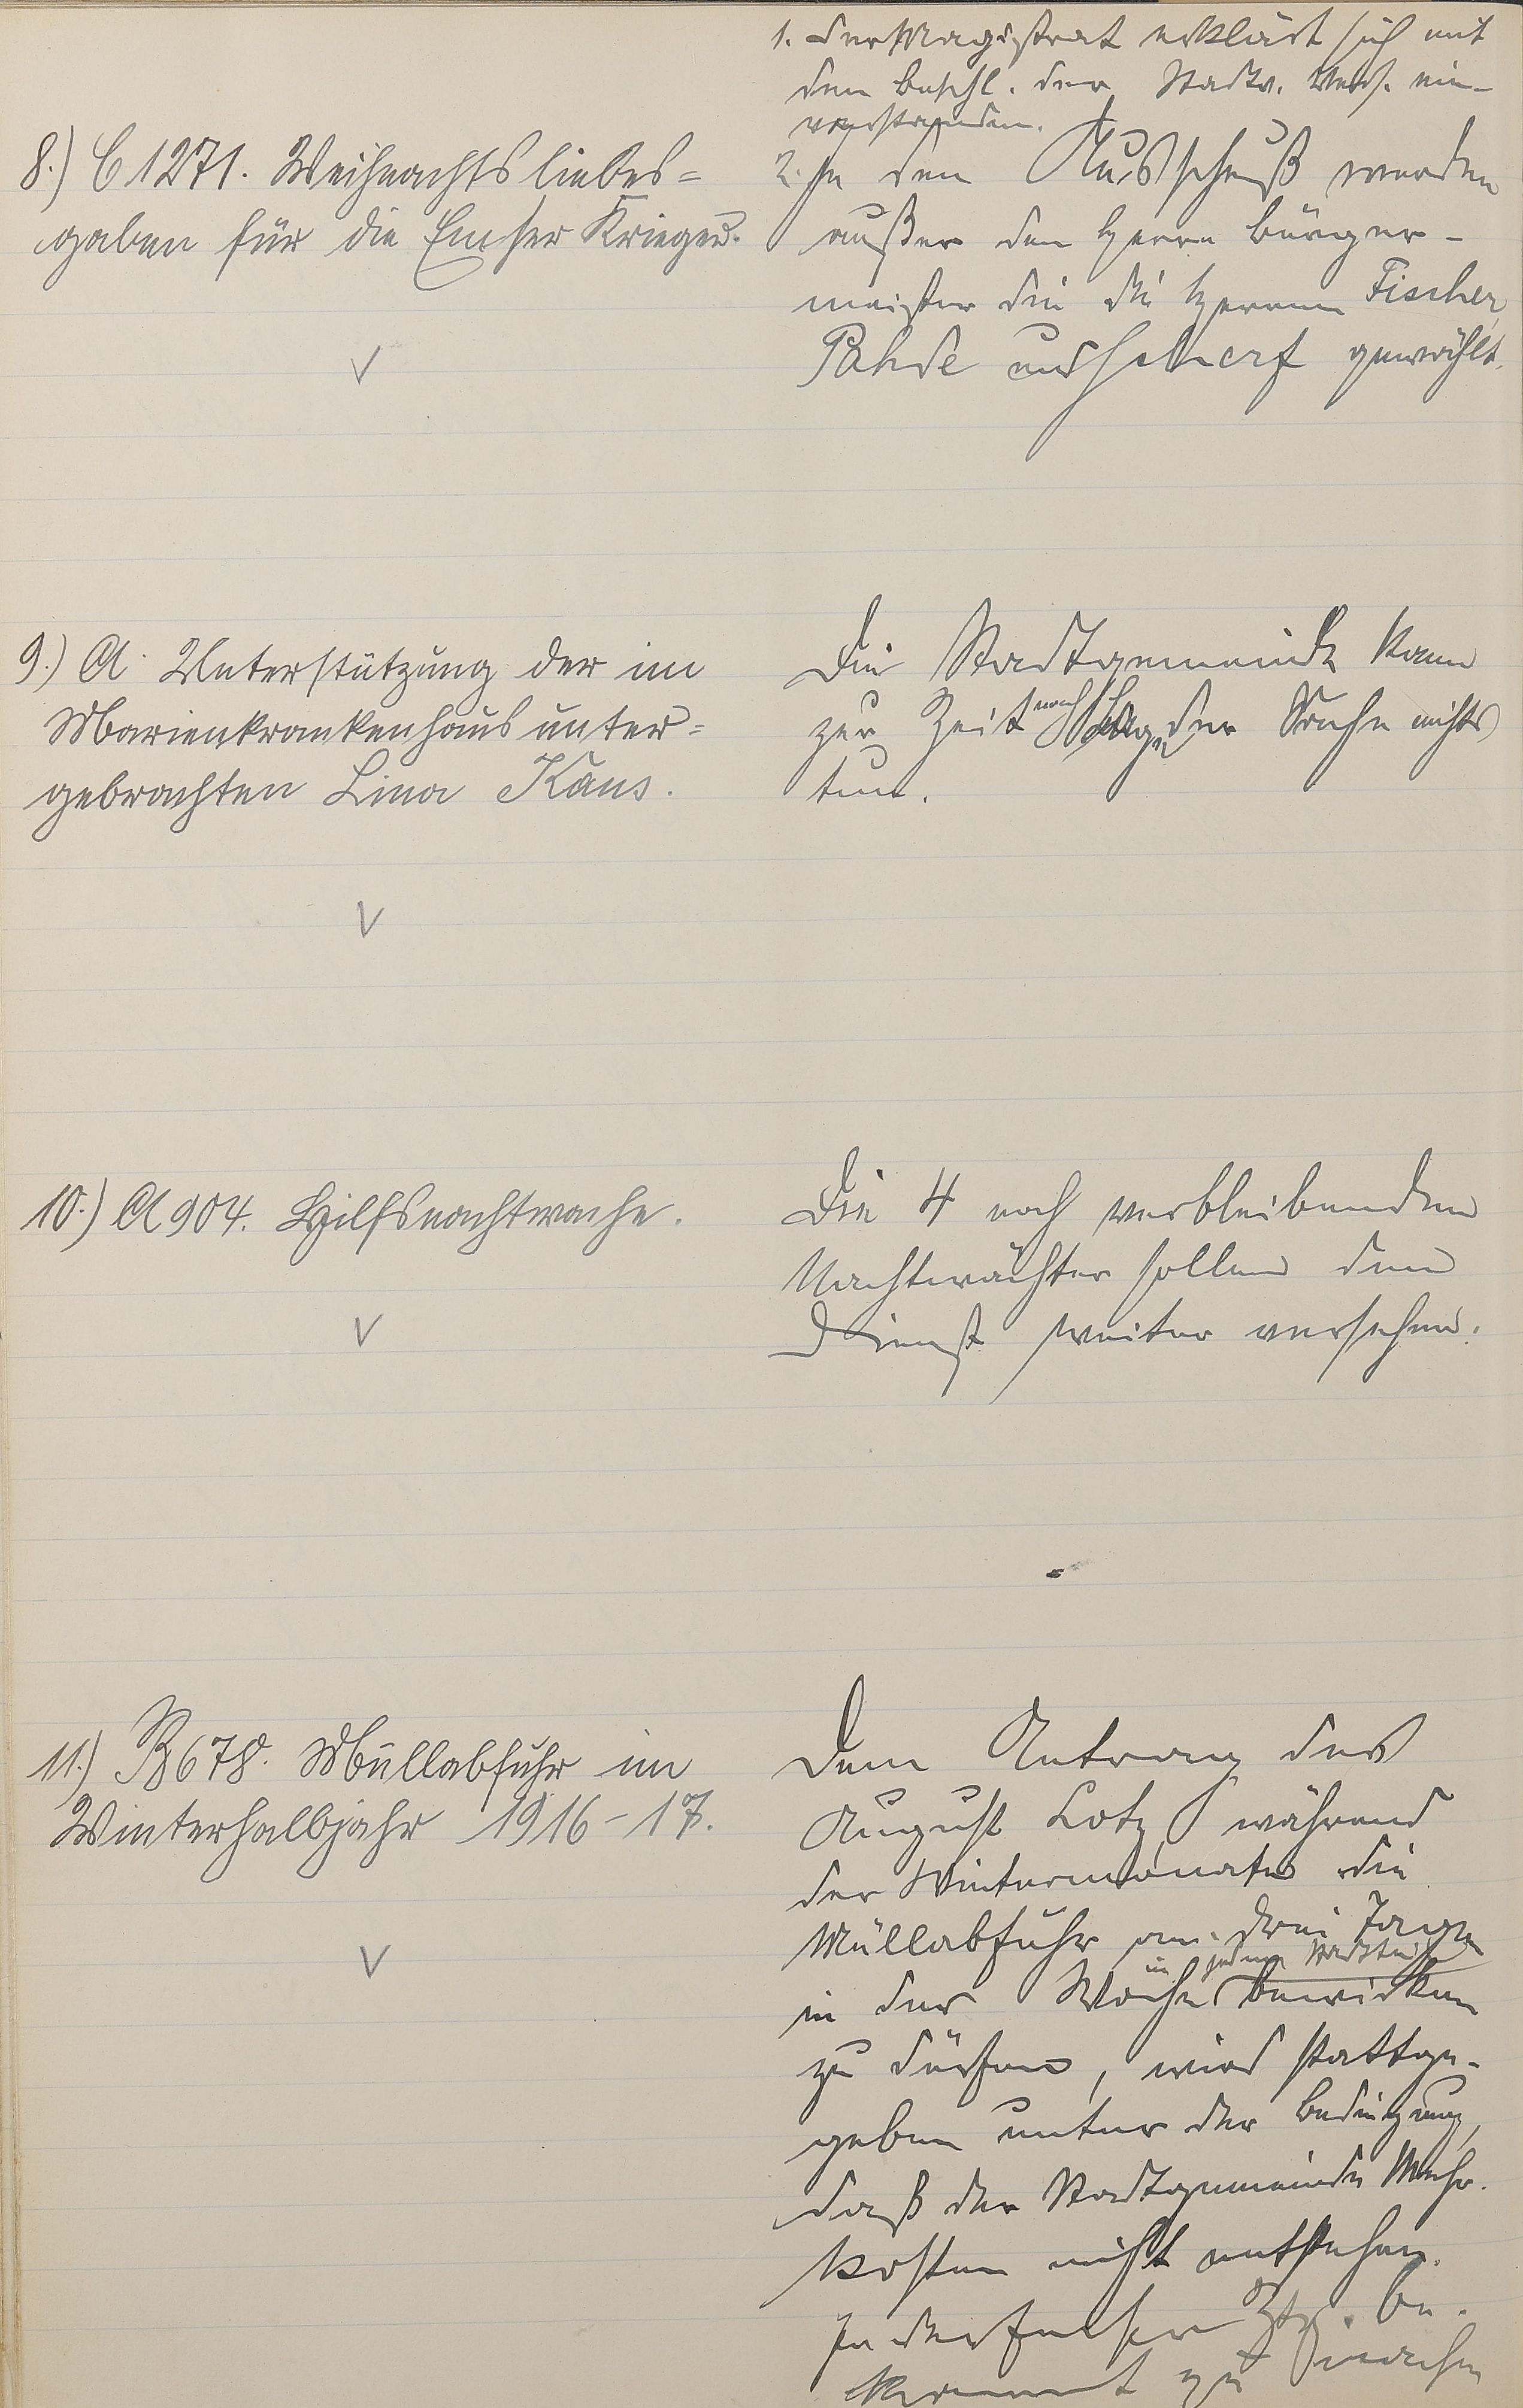 8.) C 1271. Weihnachtsliebes=
gaben für die Emser Krieger.
1. Der Magistrat erklärt sich mit
dem Beschl. der Stadtv. Vers. ein-
verstanden.
2. In den Ausschuß werden
außer dem Herrn Bürger-
meister die die Herren Fischer,
Pahde und gewählt.
9.) A. Unterstützung der im
Marienkrankenhaus unter=
gebrachten Lina Kaus.
Die Stadtgemeinde kann
zur Zeit nach Lage der Sache nichts
tun.
10.) A 904. Hilfsnachtwache.
Die 4 noch verbleibenden
Nachtwächter sollen den
Dienst weiter versehen.
11.) B 678. Müllabfuhr im
Winterhalbjahr 1916-17.
Dem Antrag des
August Lotz, während
der Wintermonate die
Müllabfuhr an drei Tagen
in jedem Stadtteil
in der Woche bewirken
zu dürfen, wird stattge-
geben unter der Bedingung,
daß der Stadtgemeinde Mehr-
kosten nicht entstehen.
In der Emser Ztg. be-
kannt zu machen